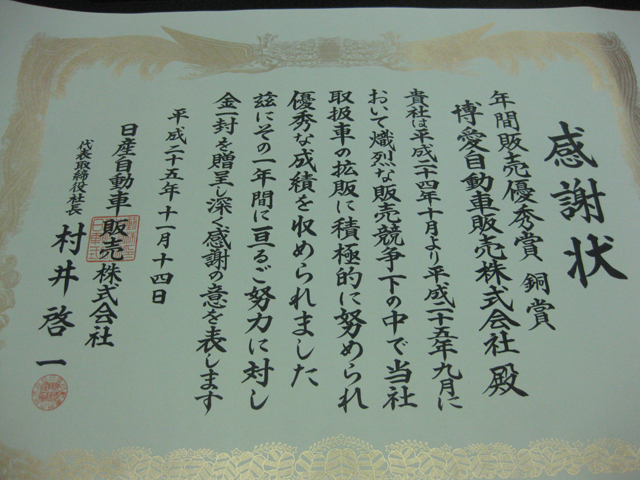 感謝状
年間販売優秀賞 銅賞
博愛自動車販売株式会社 殿
貴社は平成二十四年十月より平成二十五年九月に
おいて熾烈な販売競争下の中で当社
取扱車の拡販に積極的に努められ
優秀な成績を収められました
茲にその一年間に亘るご努力に対し
金一封を贈呈し深く感謝の意を表します
平成二十五年十一月十四日
日産自動車販売株式会社
代表取締役社長 村井啓一